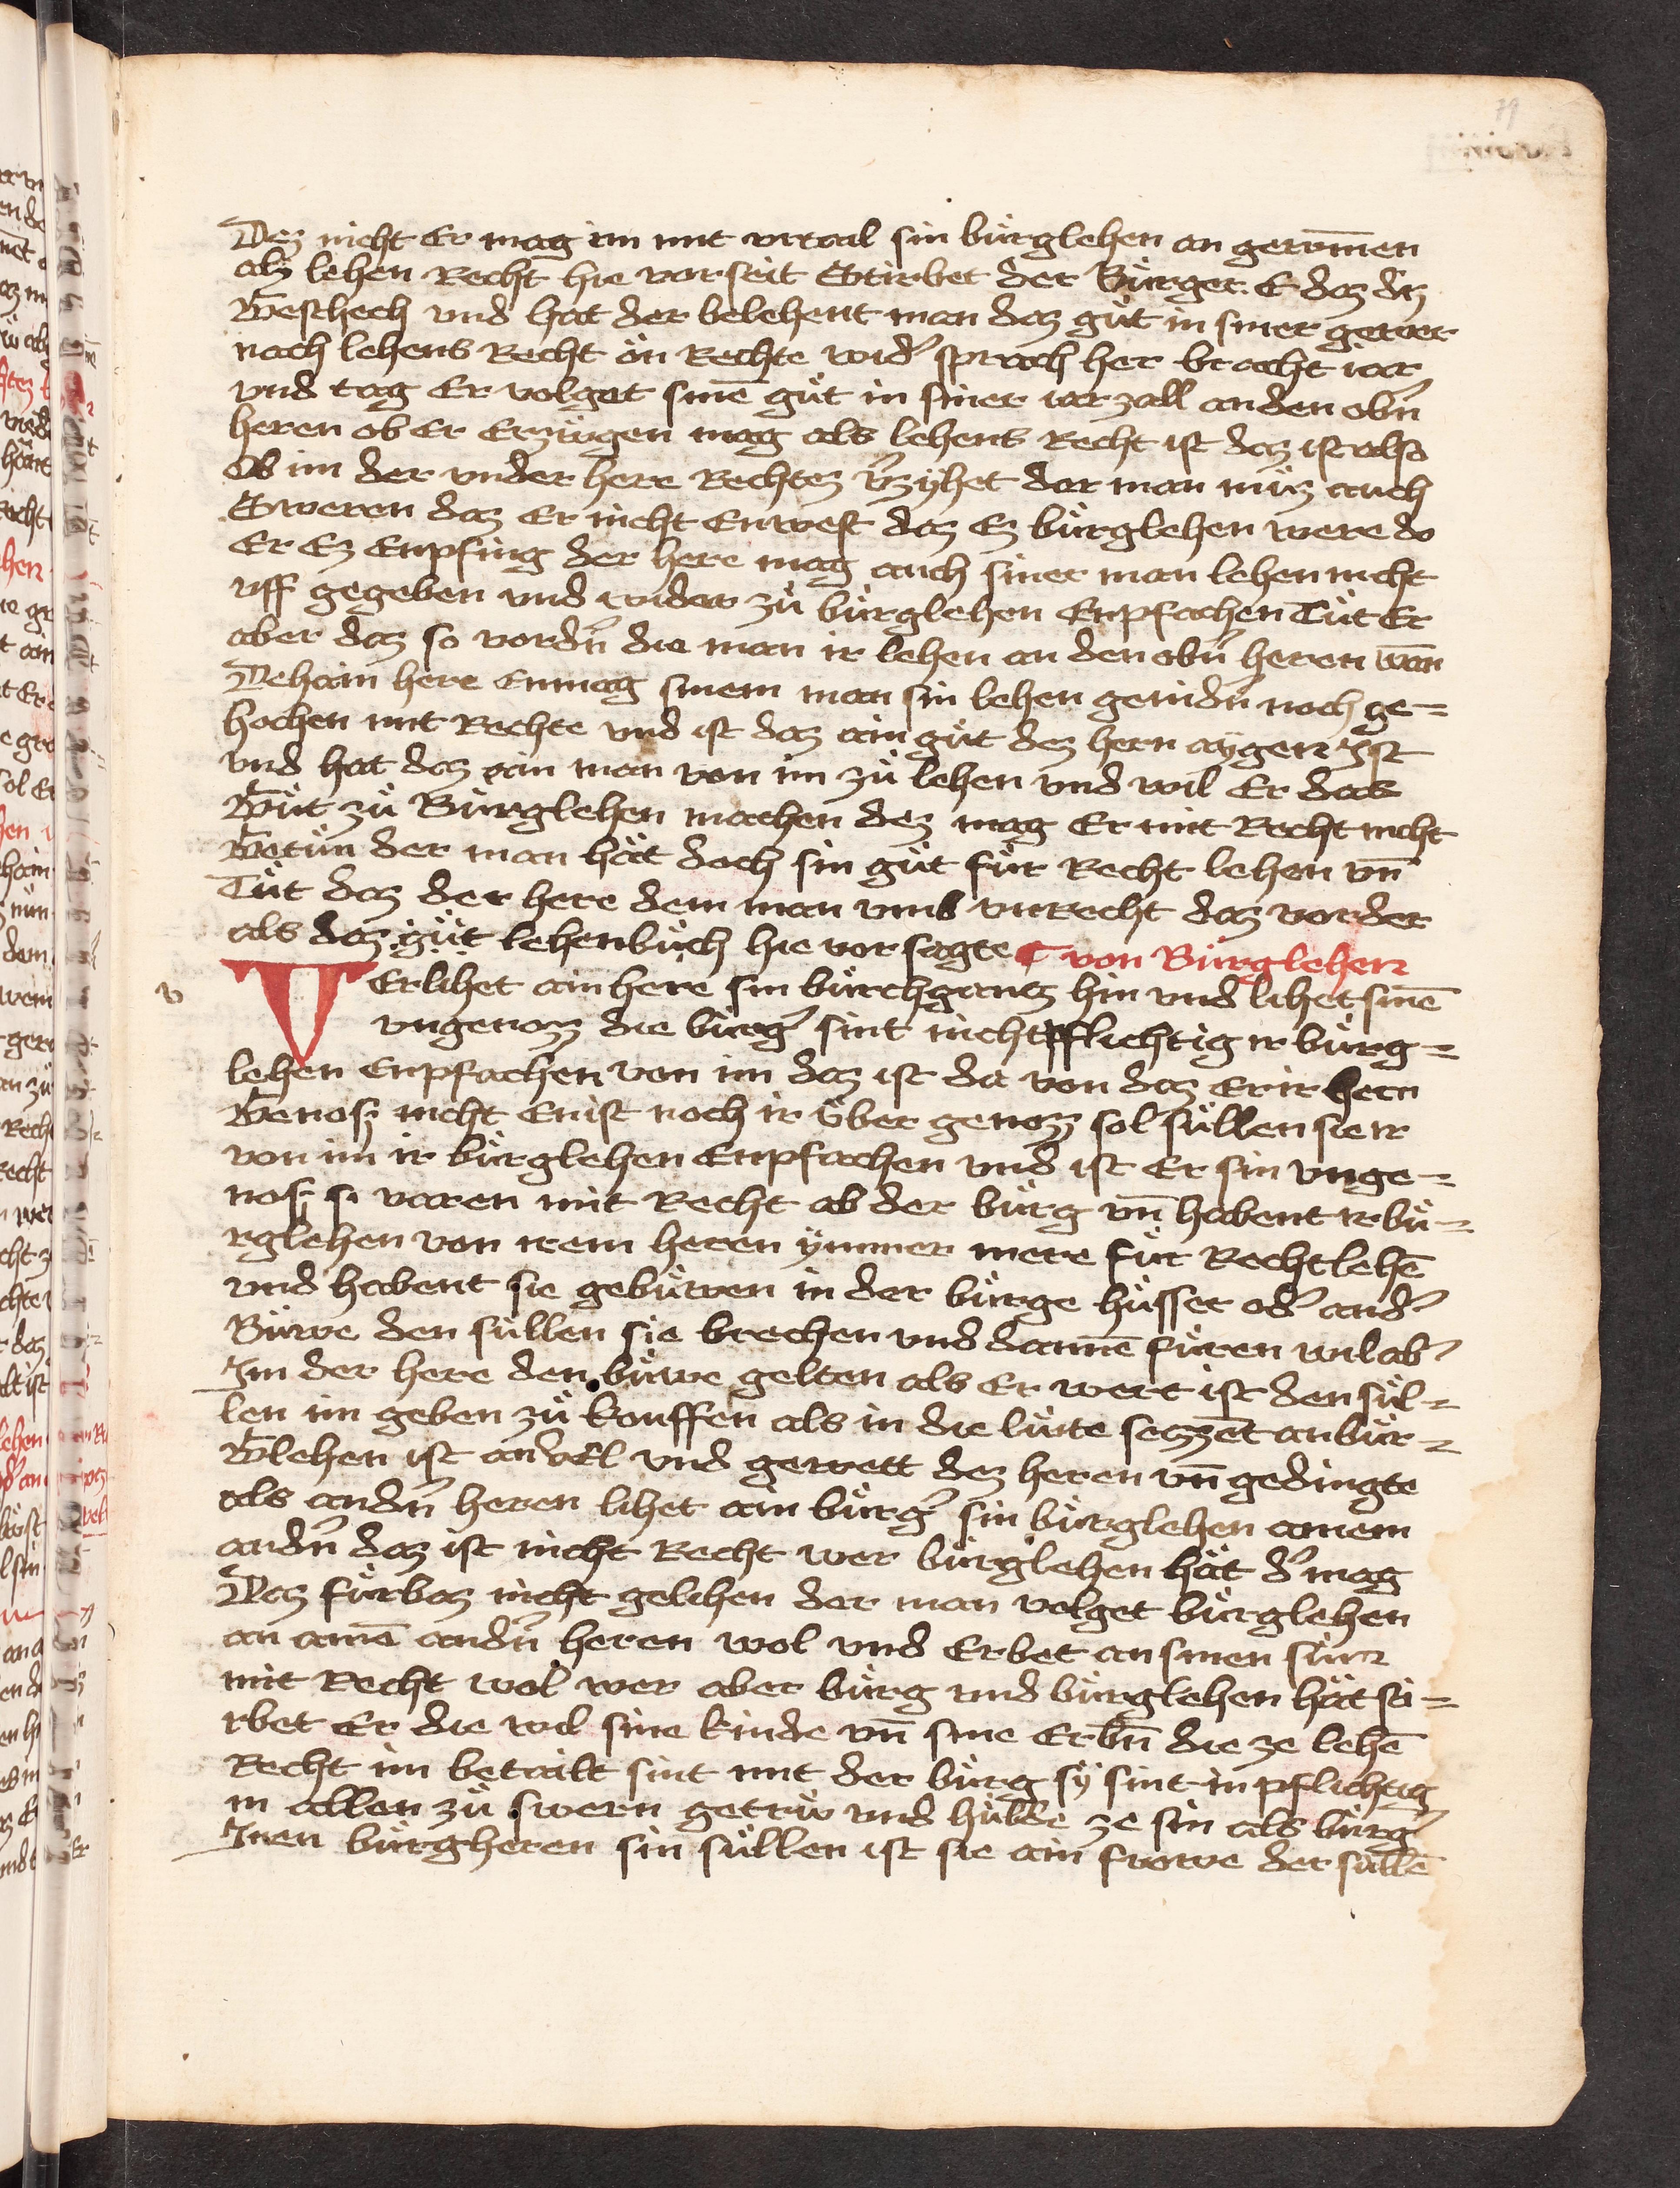 79
Dez nicht Er mag im mit vrtal sin bürglehen an gewinnen
alz lehen Recht hie vor seit Stirbet der Bürger E daz diz
Geschech vnd hat der belehent man daz güt in siner gewer
nach lehens Recht ön Rechte wid' sprach her bracht iar
vnd tag Er volget sinē güt in siner iar zall an den obn̄
heren ob Er Erzügen mag als lehens Recht ist daz ist also
Ob im der vnder here Rechtez v'zyhet der man müz auch
Sweren daz Er nicht Enwest daz Ez bürglehen were do
Er Ez Enpfing der here mag auch siner man lehen nicht
vff gegeben vnd wider zü bürglehen Enpfachen Tüt Er
aber daz so vordn̄ die man ir lehen an den obn̄ heren wan
Dehain here Enmag sinem man sin lehen genidn̄ noch ge=
hochen mit Rechte vnd ist daz ain güt dez hern aygen Ist
vnd hat daz ain man von im zü lehen vnd wil Er das
Güt zü Bürglehen machen dez mag Er mit Recht nicht
Getün der man hät doch sin güt für Recht lehen vn̄
Tüt daz der here dem man vmb vnrecht daz vorder
als daz güt lehenbüch hie vor sagte von Bürglehen
v
VErlihet ain here sin bürchgantz hin vnd lihet sinē
vngenozz die bürg' sint nicht pflichtig ir bürg=
lehen Enpfachen von im daz ist da von daz Er ir hern
Genoss nicht Enist noch ir über genozz sol süllen sie ir
von im ir bürglehen Enpfachen vnd ist Er sin vnge=
noss so varen mit Recht ab der bürg vn̄ habent ir bü=
rglehen von irem heren ymmer mere für Recht lehē
vnd habent sie gebüwen in der bürge hüsser od' and'
Büwe den süllen sie brechen vnd dannē füren wil ab'
Im der here den büwe gelten als Er wert ist den sül=
len im geben zü kouffen als in die lüite sezzēt an bür=
Glehen ist an vēl vnd gewett dez heren vn̄ gedingte
als andn̄ heren lihet ain bürg' sin bürglehen ainem
andn̄ daz ist nicht Recht wer bürglehen hät d' mag
Dez fürbaz nicht gelihen der man volget bürglehen
an ainē andn̄ heren wol vnd Erbet an sinen sün
mit Recht wol wer aber bürg vnd bürglehen hät sti=
rbet Er die wil sine kinde vn̄ sine Erbn̄ die ze lehē
Recht im betailt sint mit der bürg sy sint in pflichtig
in allen zü swern getrüw vnd hülde ze sin als bürg'
Inen bürgheren sin süllen ist sie ain frowe der süllē